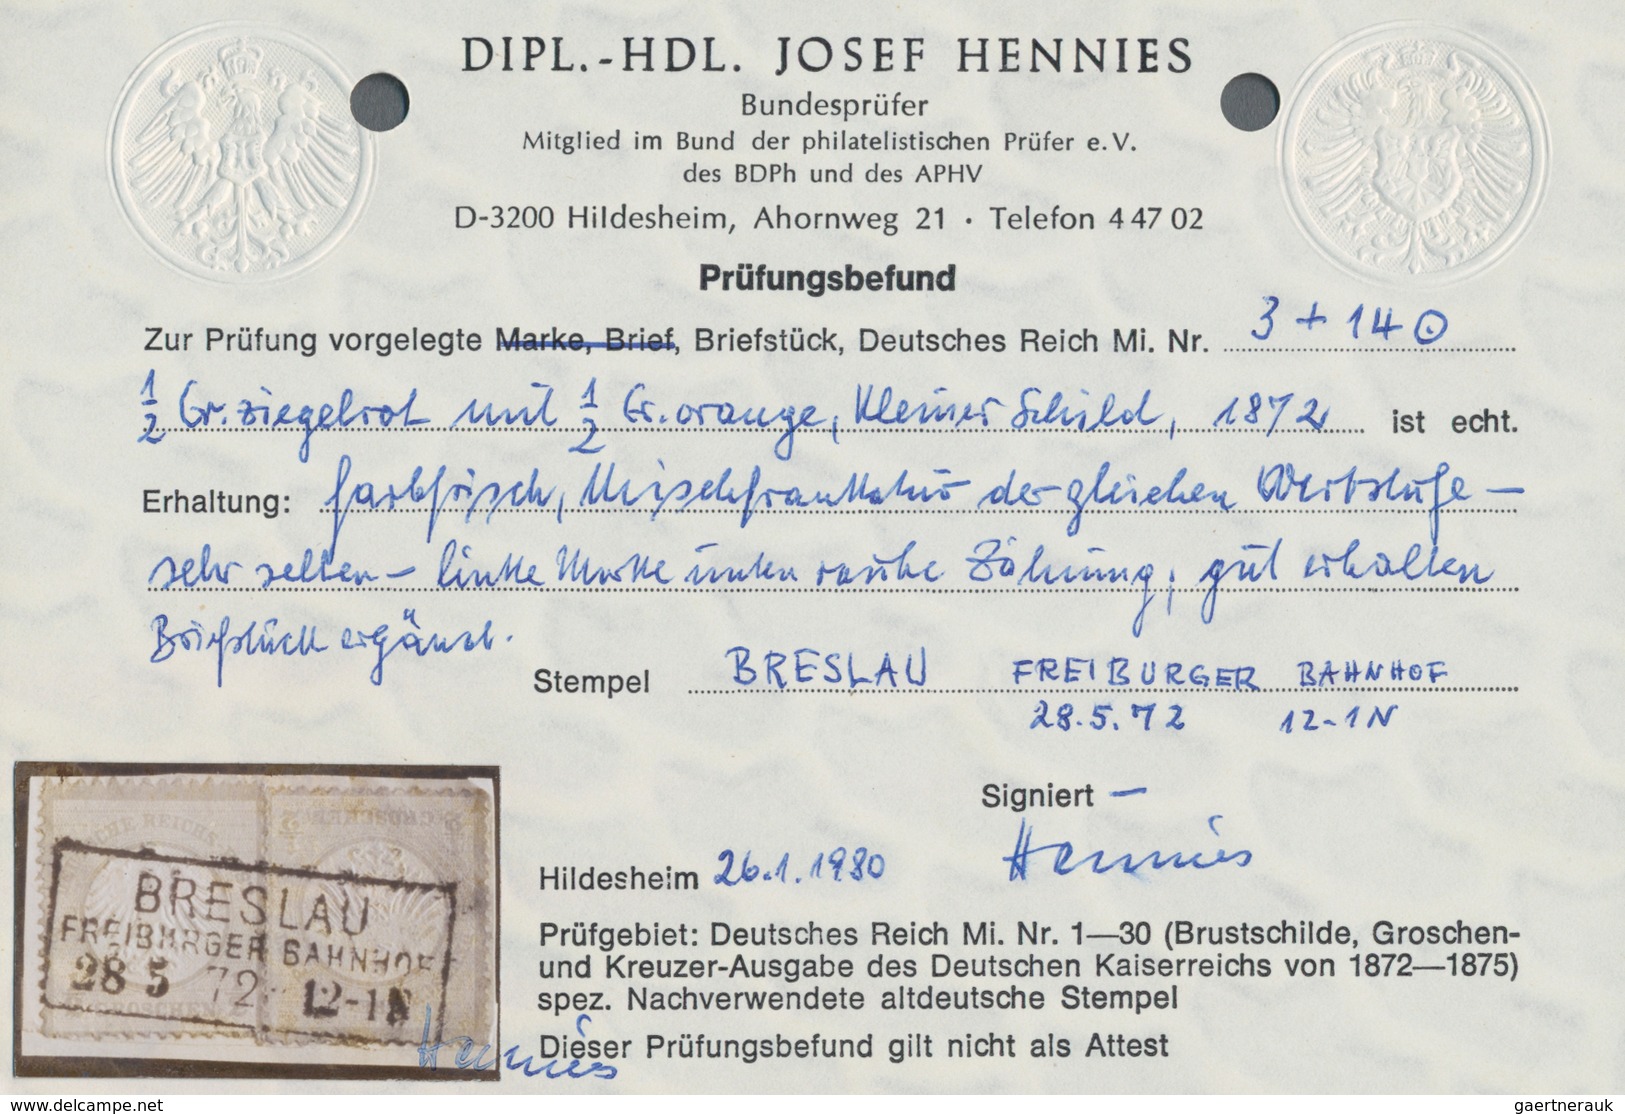 DIPL.-HDL. JOSEF HENNIES
Bundesprüfer
Mitglied im Bund der philatelistischen Prüfer e.V.
des BDPh und des APHV
D-3200 Hildesheim, Ahornweg 21 · Telefon 4 47 02
Prüfungsbefund
Zur Prüfung vorgelegte Marke, Brief, Briefstück, Deutsches Reich Mi. Nr. 3 + 14 ⊙
1/2 Gr. ziegelrot mit 1/2 Gr. orange, kleiner Schild, 1872 ist echt.
Erhaltung: farbfrisch, Mischfrankatur der gleichen Wertstufe –
sehr selten – linke Marke unten rauhe Zähnung, gut erhalten
Briefstück ergänzt.
Stempel BRESLAU FREIBURGER BAHNHOF
28.5.72 12-1N
Signiert –
Hennies
Hildesheim 26.1.1980
Prüfgebiet: Deutsches Reich Mi. Nr. 1—30 (Brustschilde, Groschen-
und Kreuzer-Ausgabe des Deutschen Kaiserreichs von 1872—1875)
spez. Nachverwendete altdeutsche Stempel
Dieser Prüfungsbefund gilt nicht als Attest
CHE REICHS
GROSCHEN
BRESLAU
FREIBURGER BAHNHOF
28 5 72 12-1N
GROSCHEN
Hennies
www.delcampe.net
gaertnerauk